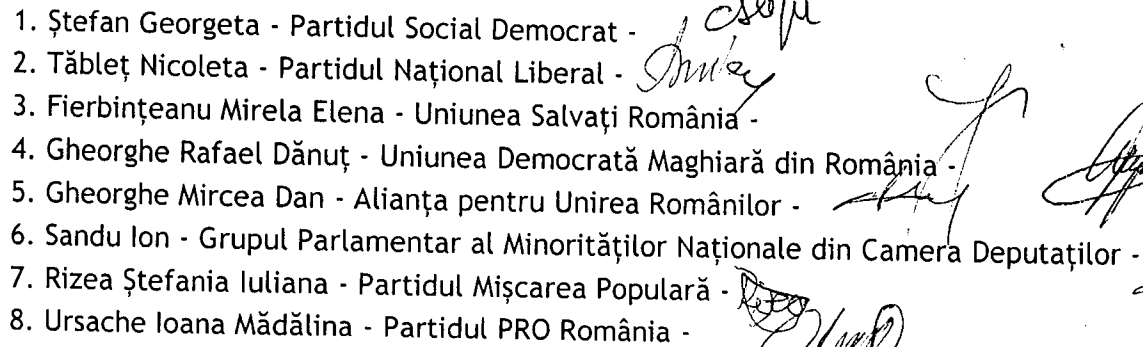 1. Ștefan Georgeta - Partidul Social Democrat -
2. Tăbleț Nicoleta - Partidul Național Liberal -
3. Fierbințeanu Mirela Elena - Uniunea Salvați România -
4. Gheorghe Rafael Dănuț - Uniunea Democrată Maghiară din România -
5. Gheorghe Mircea Dan - Alianța pentru Unirea Românilor -
6. Sandu Ion - Grupul Parlamentar al Minorităților Naționale din Camera Deputaților -
7. Rizea Ștefania Iuliana - Partidul Mișcarea Populară -
8. Ursache Ioana Mădălina - Partidul PRO România -